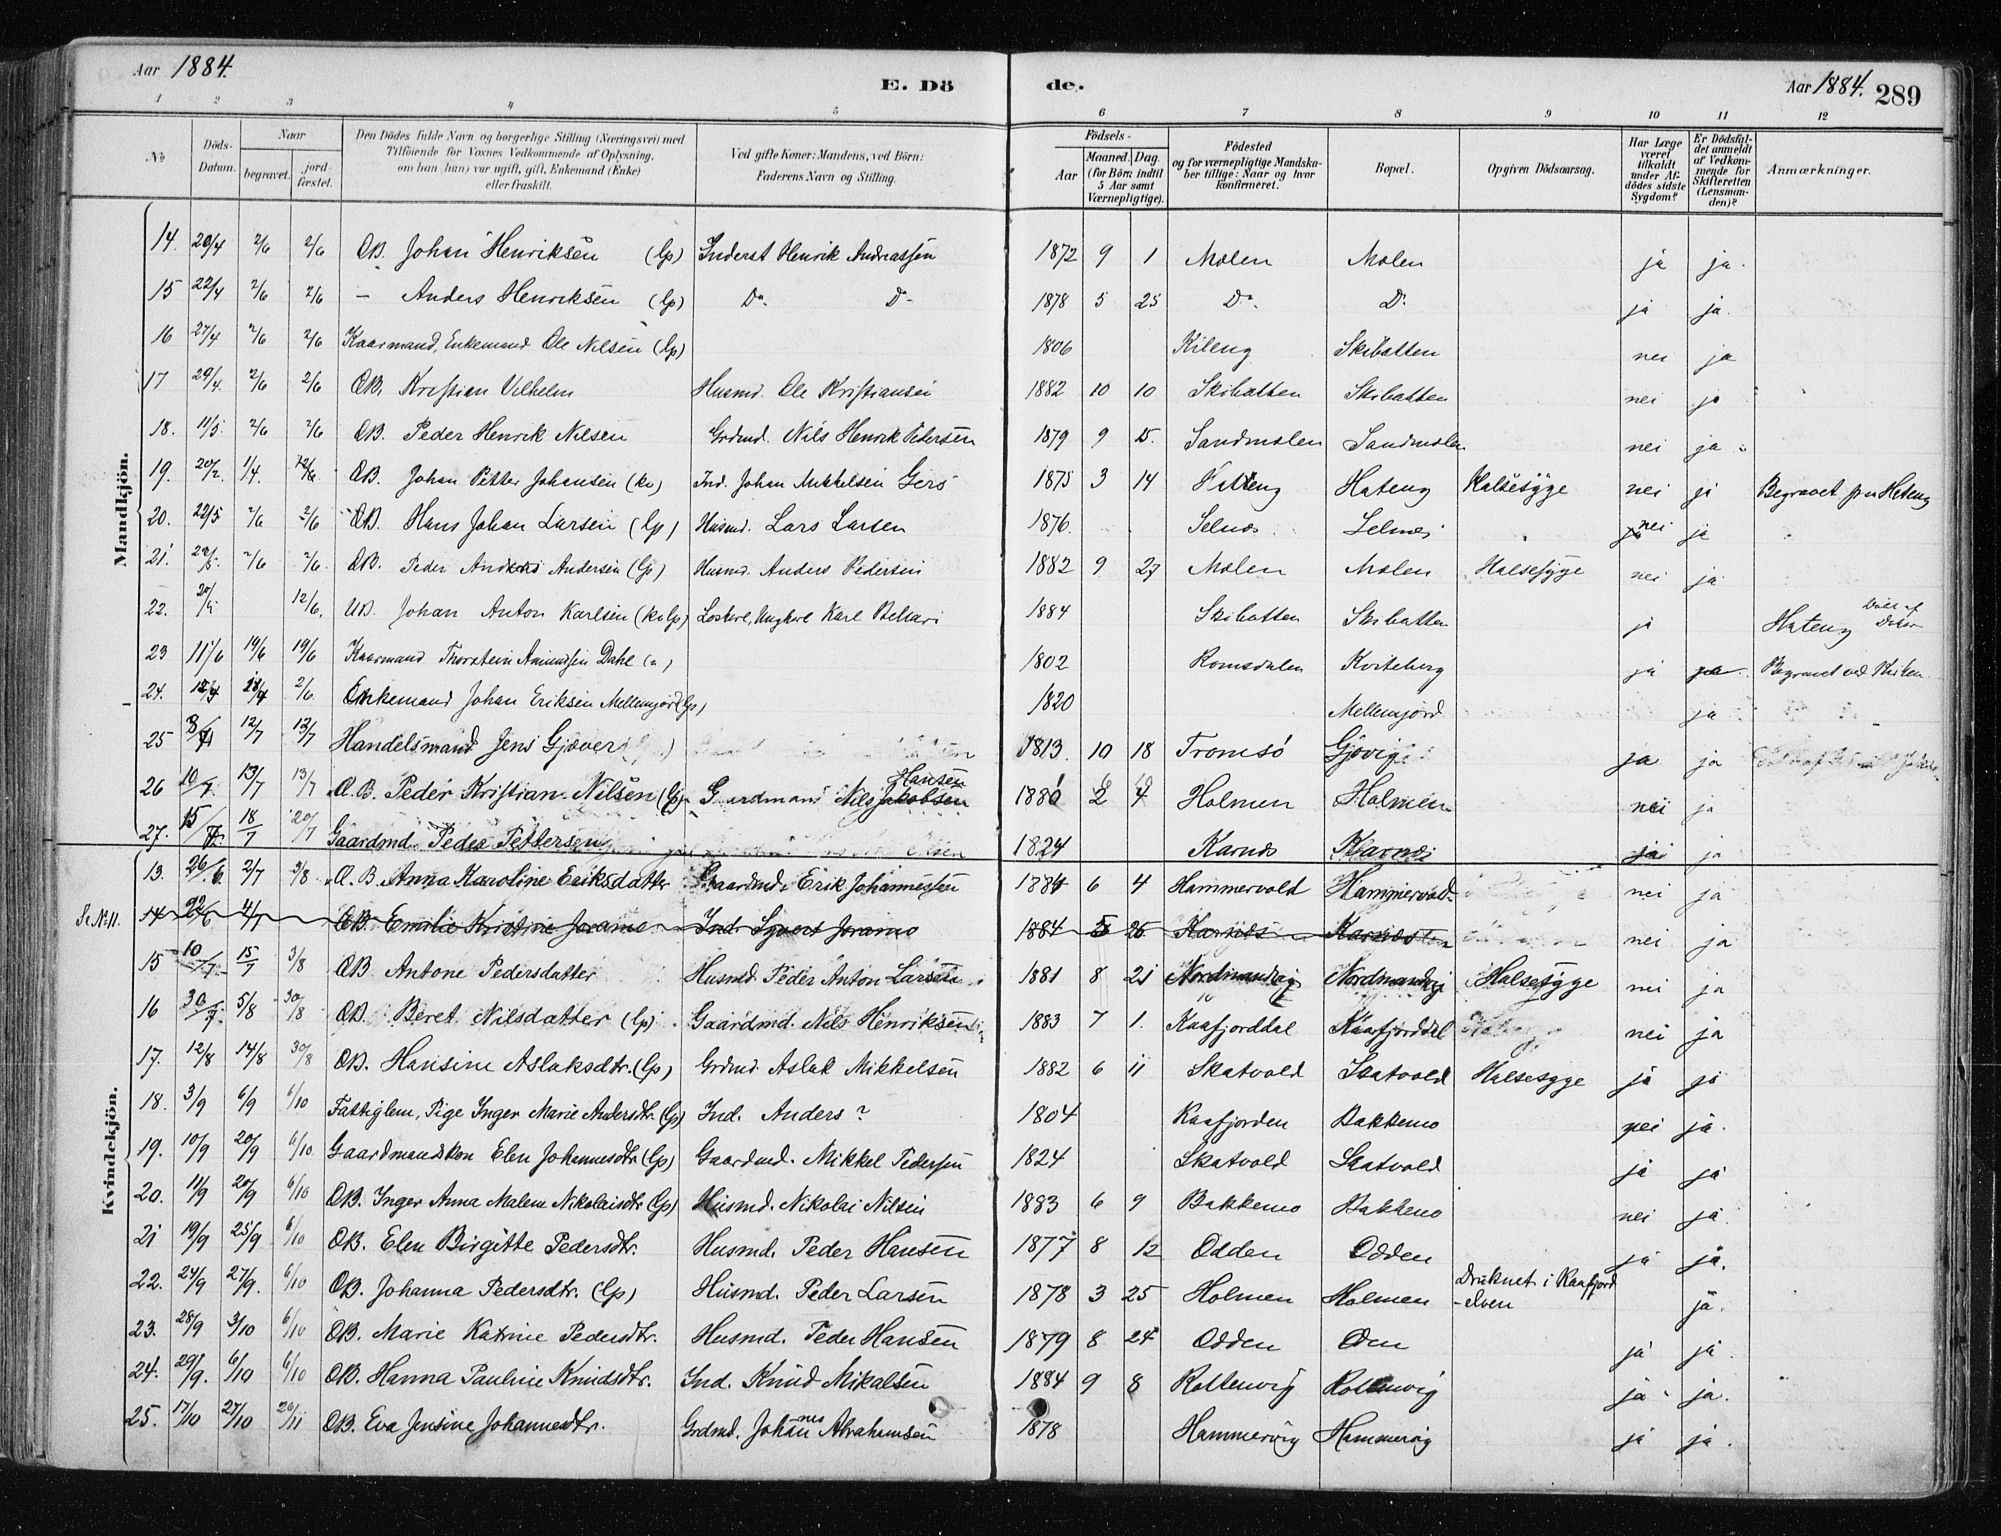 Aar 1884.
E. Dö
de.
Aar 1884. 289
1 2 3 4 5 6 7 8 9 10 11 12
№ Döds-Datum. Naar begravet. jord-fæstet. Den Dödes fulde Navn og borgerlige Stilling (Næringsvei) med Tilföiende for Voxnes Vedkommende af Oplysning, om han (hun) var ugift, gift, Enkemand (Enke) eller fraskilt. Ved gifte Koner: Mandens, ved Börn: Faderens Navn og Stilling. Födsels- Aar Maaned. Dag. (for Börn indtil 5 Aar samt Værnepligtige). Födested og for værnepligtige Mandska-ber tillige: Naar og hvor konfirmeret. Bopæl. Opgiven Dödsaarsag. Har Læge været tilkaldt under Af-dödes sidste Sygdom? Er Dödsfal-det anmeldt af Vedkom-mende for Skifteretten (Lensman-den)? Anmærkninger.
Mandkjön.
14. 20/4 2/6 2/6 ÆB. Johan Henriksen (lp) Inderst Henrik Andreassen 1872 9 1 Molen Molen ja ja.
15 22/4 2/6 2/6 – Anders Henriksen (lp) Do. Do- 1878 5 25 Do. Do. ja ja.
16 27/4 2/6 2/6 Kaarmand, Enkemand Ole Nilsen (lp) 1806 Kileng Skibatten nei ja
17 29/4. 2/6 2/6 ÆB. Kristian Vilhelm Husmd. Ole Kristiansen 1882 10 10 Skibatten Skibatten nei ja
18. 11/5 2/6 2/6 ÆB. Peder Henrik Nilsen Grdmd. Nils Henrik Pedersen 1879 9 15. Sandmolen Sandmolen nei ja
19. 20/2. 1/4. 12/6 ÆB. Johan Petter Johansen (kv) Ind. Johan Mikkelsen 1875 3 14 Hateng Halsesyge nei ja Begravet paa Hateng
20. 22/5 2/6 2/6 ÆB. Hans Johan Larsen (lp) Husmd. Lars Larsen 1876. Selnæs Selnæs nei ja
21. 2/6 2/6. ÆB. Peder Andersen (lp) Husmd. Anders Pedersen 1882 9 27 Molen Molen Halsesyge nei ja
22. 12/6. UB. Johan Anton Karlsen (kv lp) Ungkarl Karl 1884 Skibatten Skibatten ja Hateng
23 11/6 19/6 19/6 Kaarmand Thorstein Amundsen Dahl 1802 Romsdalen Kviteberg ja ja Begravet ved Kirken
24. 2/6. Enkemand Johan Eriksen Mellemjord (lp) 1820 Mellemjord ja
25 12/7 13/7 Handelsmand Jens Gjæver 1813. 10 18 Tromsö Gjövig ja ja
26 10/7. 13/7 13/7 Æ.B. Peder Kristian Nilsen (lp) Gaardmand Nils Hansen Jakobsen 1880 2 4 Holmen Holmen nei ja
27. 15/7. 18/7 20/7 Gaardmd. Peder Pettersen 1824 Karnæs Karnæs ja
Kvindekjön.
13. 26/6 2/7 3/8 Æ.B. Anna Karoline Eriksdatter Gaardmd. Erik Johannessen 1884 6 4 Hammervold Hammervold. nei ja
Se No 11. 14 22/6 4/7 ÆB. Emilie Kristine Joramo Ind. Syvert Joramo 1884 5 25 Karnæs Karnæs nei ja
15 10/7 15/7 3/8 ÆB Antone Pedersdatter Husmd. Peder Anton Larsen 1881 8 21 Nordmandvig Nordmandvig Halsesyge nei ja
16 30/7 5/8 30/8 ÆB. Beret Nilsdatter (lp). Gaardmd. Nils Henriksen 1883 7 1. Kaafjorddal Kaafjorddal nei ja
17. 12/8 14/8 30/8 ÆB. Hansine Aslaksdtr. (lp) Grdmd. Aslak Mikkelsen 1882 6 11 Skatvold Skatvold Halsesyge ja ja
18. 3/9 6/9 6/10 Fattiglem, Pige Inger Marie Andersdtr. (lp) Ind. Anders ? 1804 Kaafjorden Bakkemo nei ja.
19. 10/9 20/9 6/10 Gaardmandskon Elen Johannesdtr (lp) Gaardmd. Mikkel Pedersen 1824 Skatvold Skatvold ja ja
20. 11/9 20/9 6/10 ÆB. Inger Anna Malene Nikolaisdtr (lp) Husmd. Nikolai Nilsen 1883 6 9 Bakkemo Bakkemo nei ja.
21 19/9 25/9 6/10 ÆB. Elen Birgitte Pedersdtr. Husmd. Peder Hansen 1877 8 12 Odden Odden ja ja.
22. 24/9 27/9. 6/10 ÆB. Johanna Pedersdtr. (lp) Husmd. Peder Larsen 1878 3 25 Holmen Holmen Druknet i Kaafjord-elven ja.
23. 28/9 3/10 6/10 ÆB. Marie Katrine Pedersdtr. Husmd. Peder Hansen 1879 8 24 Odden Oden ja ja.
24. 29/9. 6/10 6/10 ÆB. Hanna Pauline Knudsdtr. Ind. Knud Mikalsen 1884 9 8 Rottenvig Rottenvig ja ja.
25. 17/10 27/10 26/11 ÆB. Eva Jensine Johannesdtr. Grdmd. Johannes Abrahamsen 1878 Hammervig Hammervig ja ja.